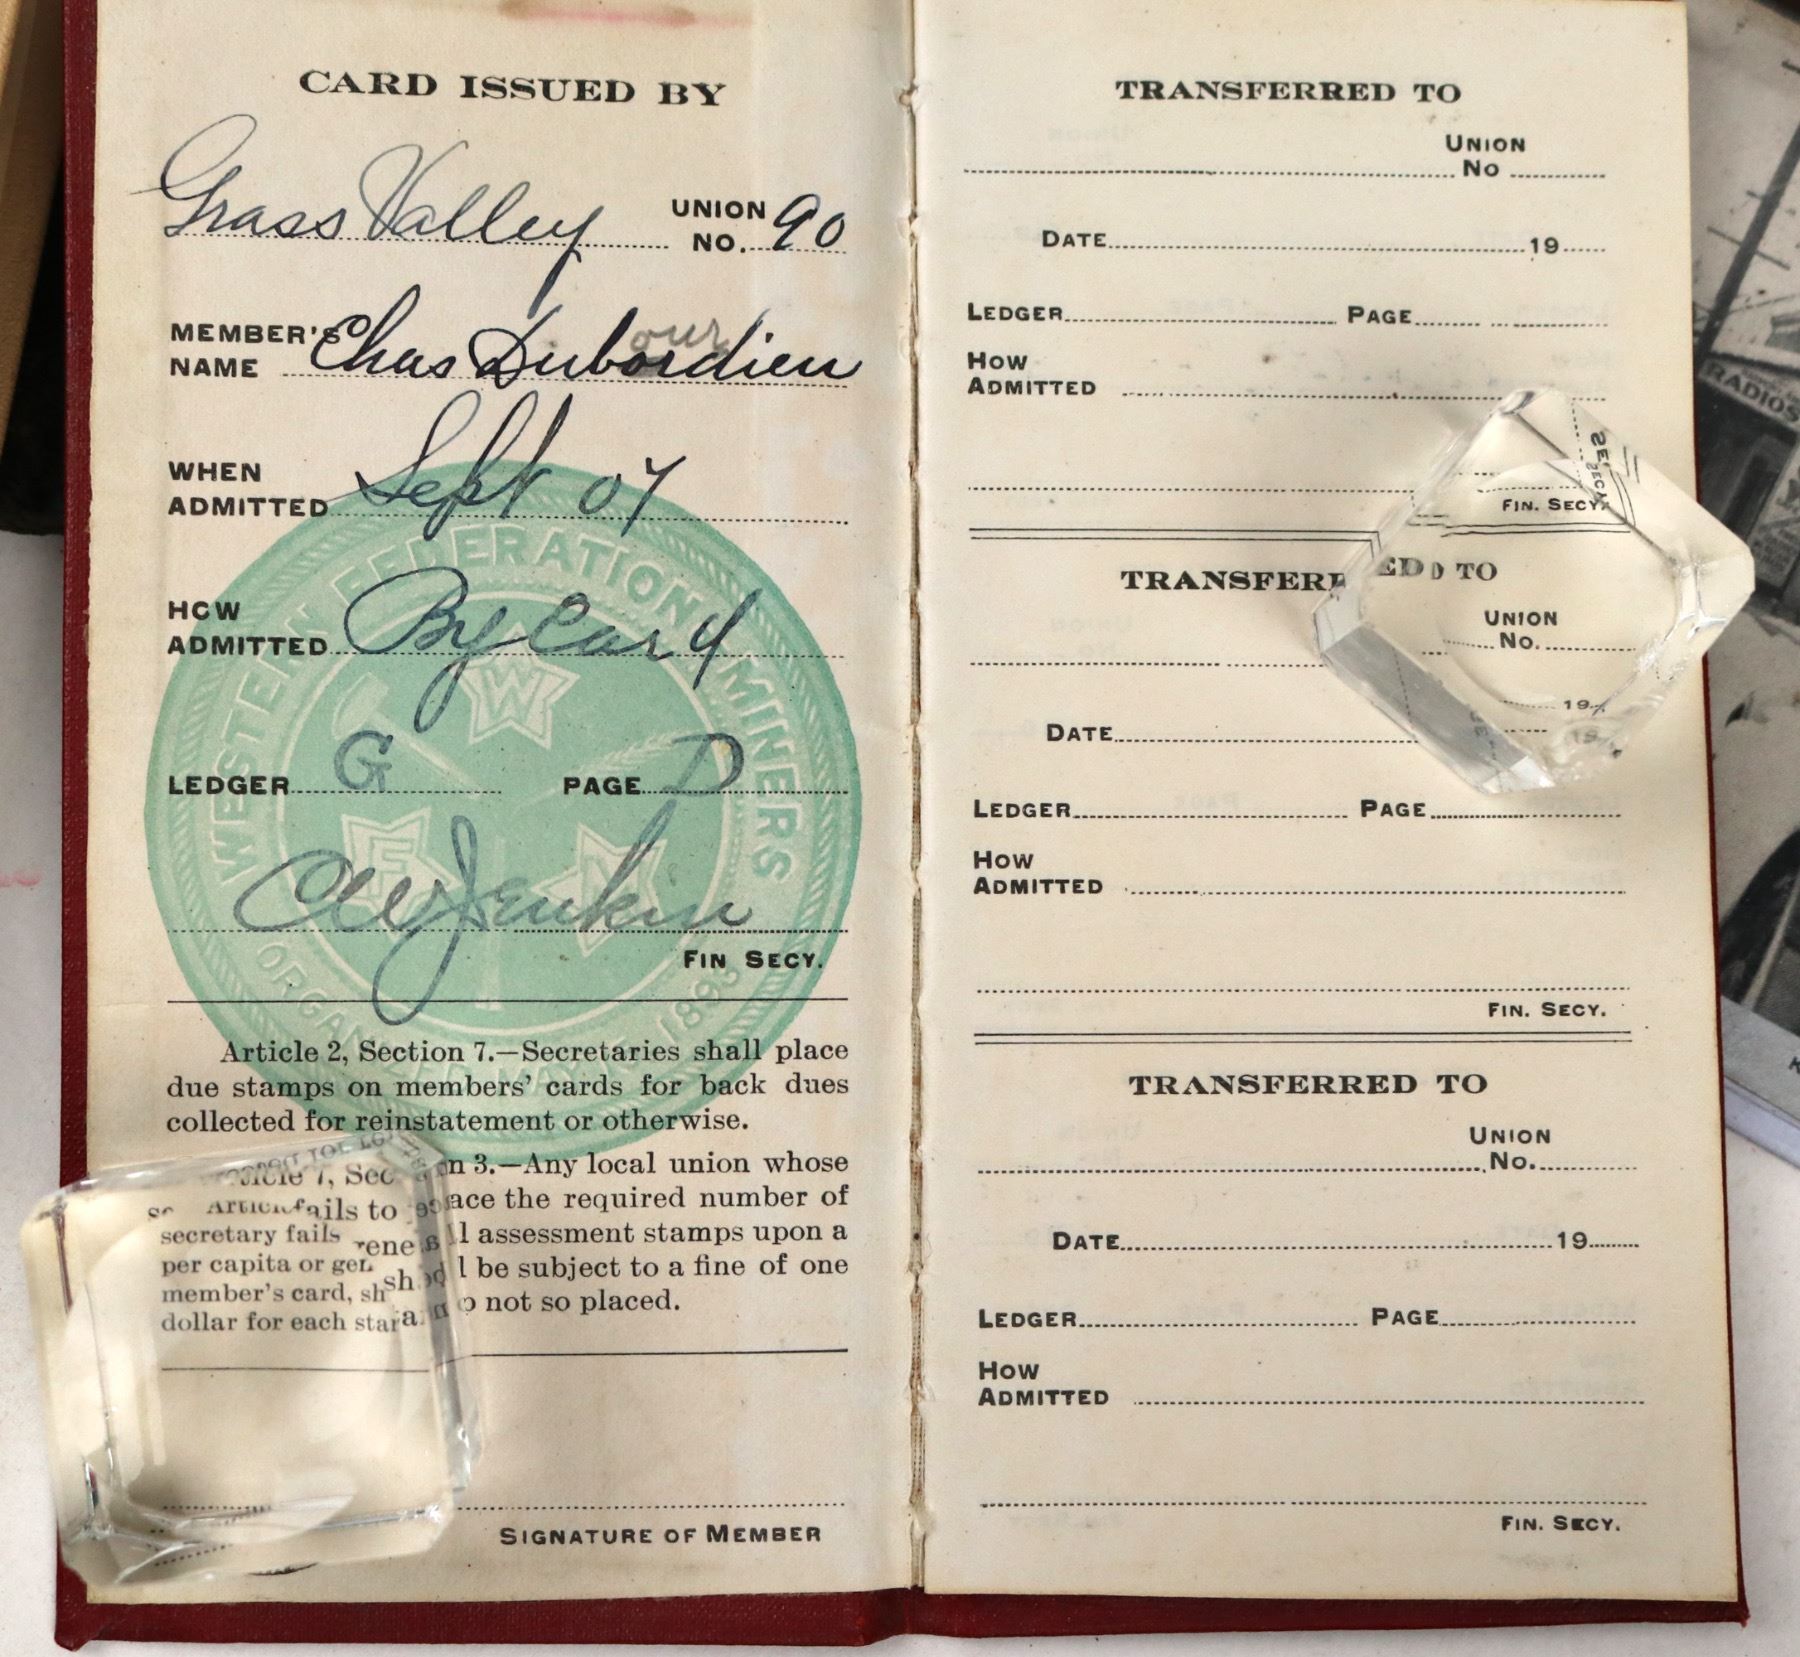 CARD ISSUED BY
Grass Valley UNION NO. 90
MEMBER'S NAME Chas Dubordieu
our
WHEN ADMITTED Sept 07
HOW ADMITTED By Card
LEDGER G PAGE D
CW Jenkin
FIN SECY.
WESTERN FEDERATION MINERS
W
F M
ORGANIZED MAY 1893
Article 2, Section 7.—Secretaries shall place
due stamps on members' cards for back dues
collected for reinstatement or otherwise.
Article 7, Section 3.—Any local union whose
secretary fails to place the required number of
per capita or general assessment stamps upon a
member's card, shall be subject to a fine of one
dollar for each stamp not so placed.
SIGNATURE OF MEMBER
TRANSFERRED TO
UNION NO
DATE 19
LEDGER PAGE
HOW ADMITTED
FIN. SECY.
TRANSFERRED TO
UNION NO.
DATE 19
LEDGER PAGE
HOW ADMITTED
FIN. SECY.
TRANSFERRED TO
UNION NO.
DATE 19
LEDGER PAGE
HOW ADMITTED
FIN. SECY.
RADIOS
K